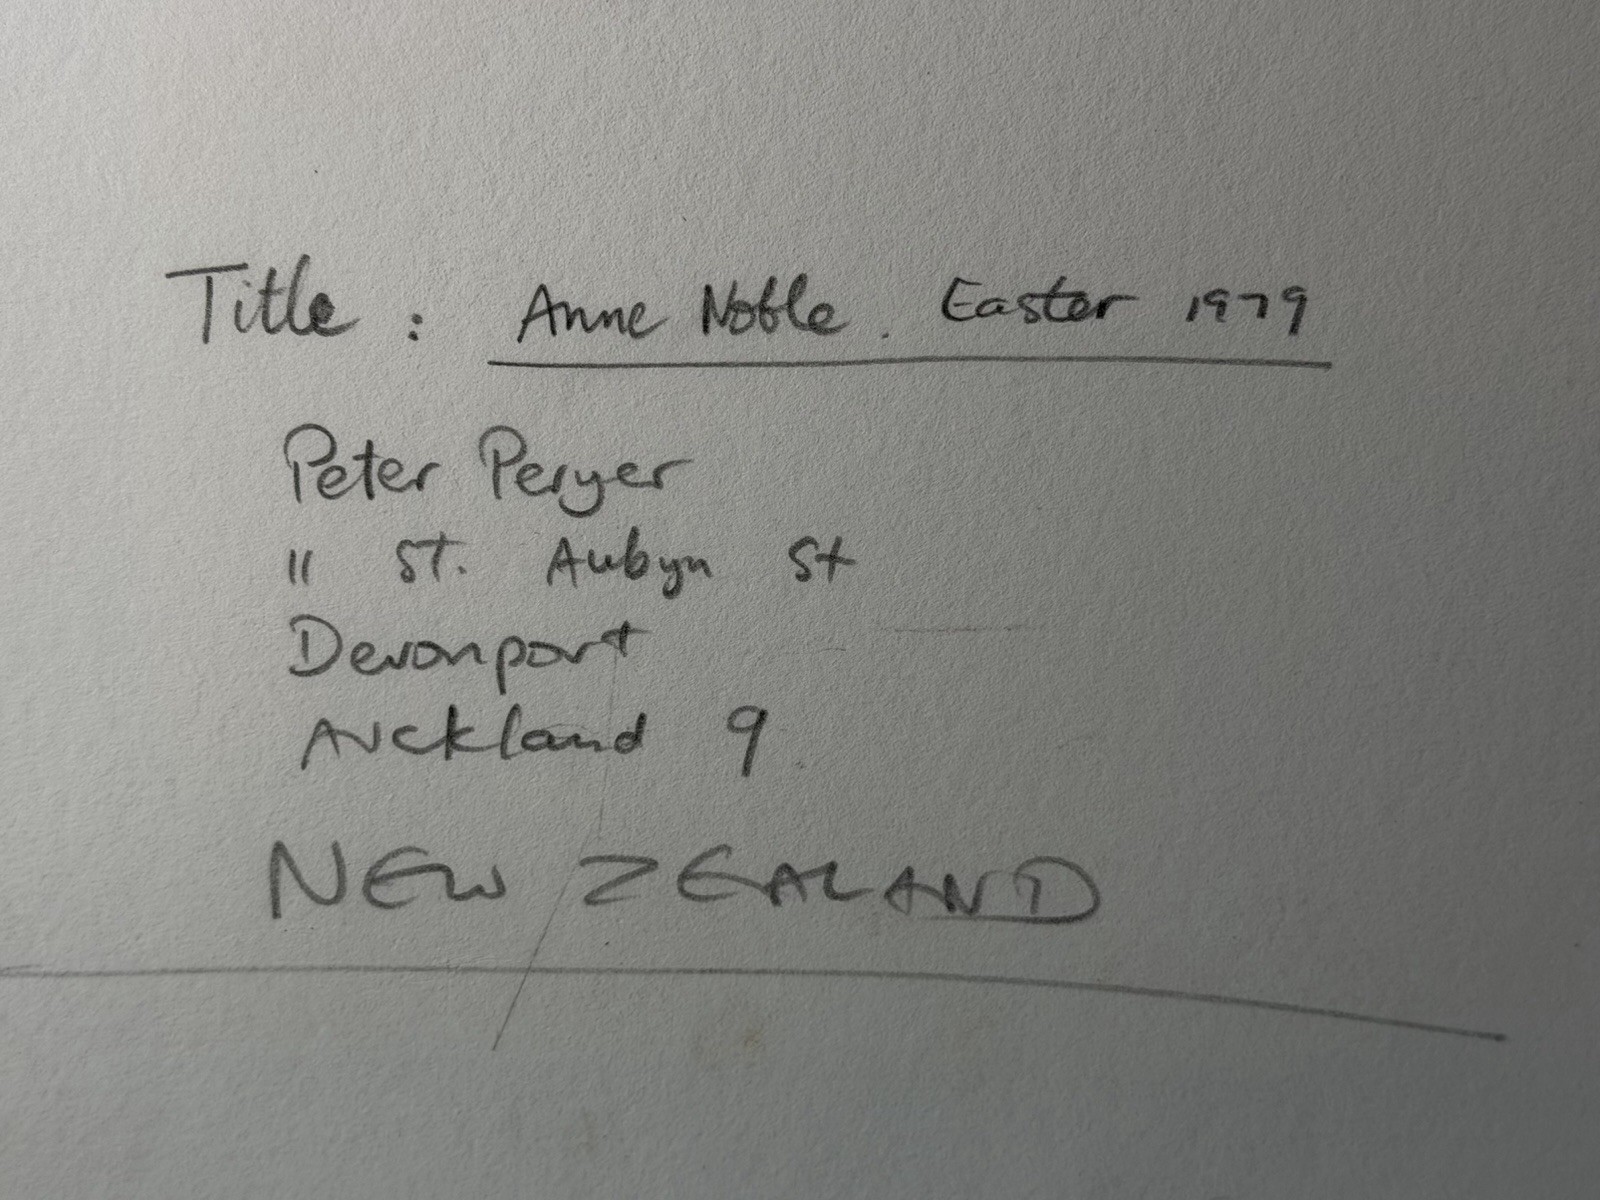 Title : Anne Noble. Easter 1979
Peter Peryer
11 ST. Aubyn St
Devonport
Auckland 9
NEW ZEALAND